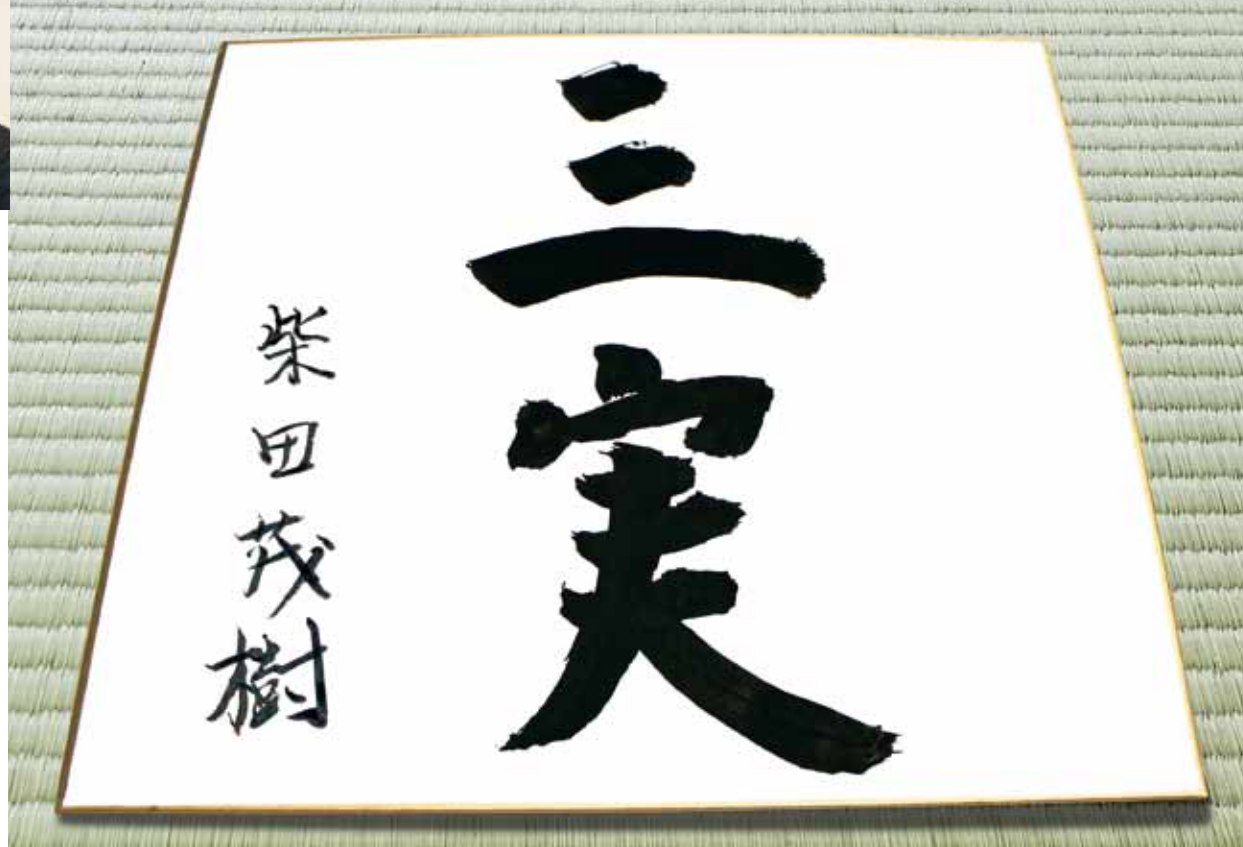 三実
柴田茂樹